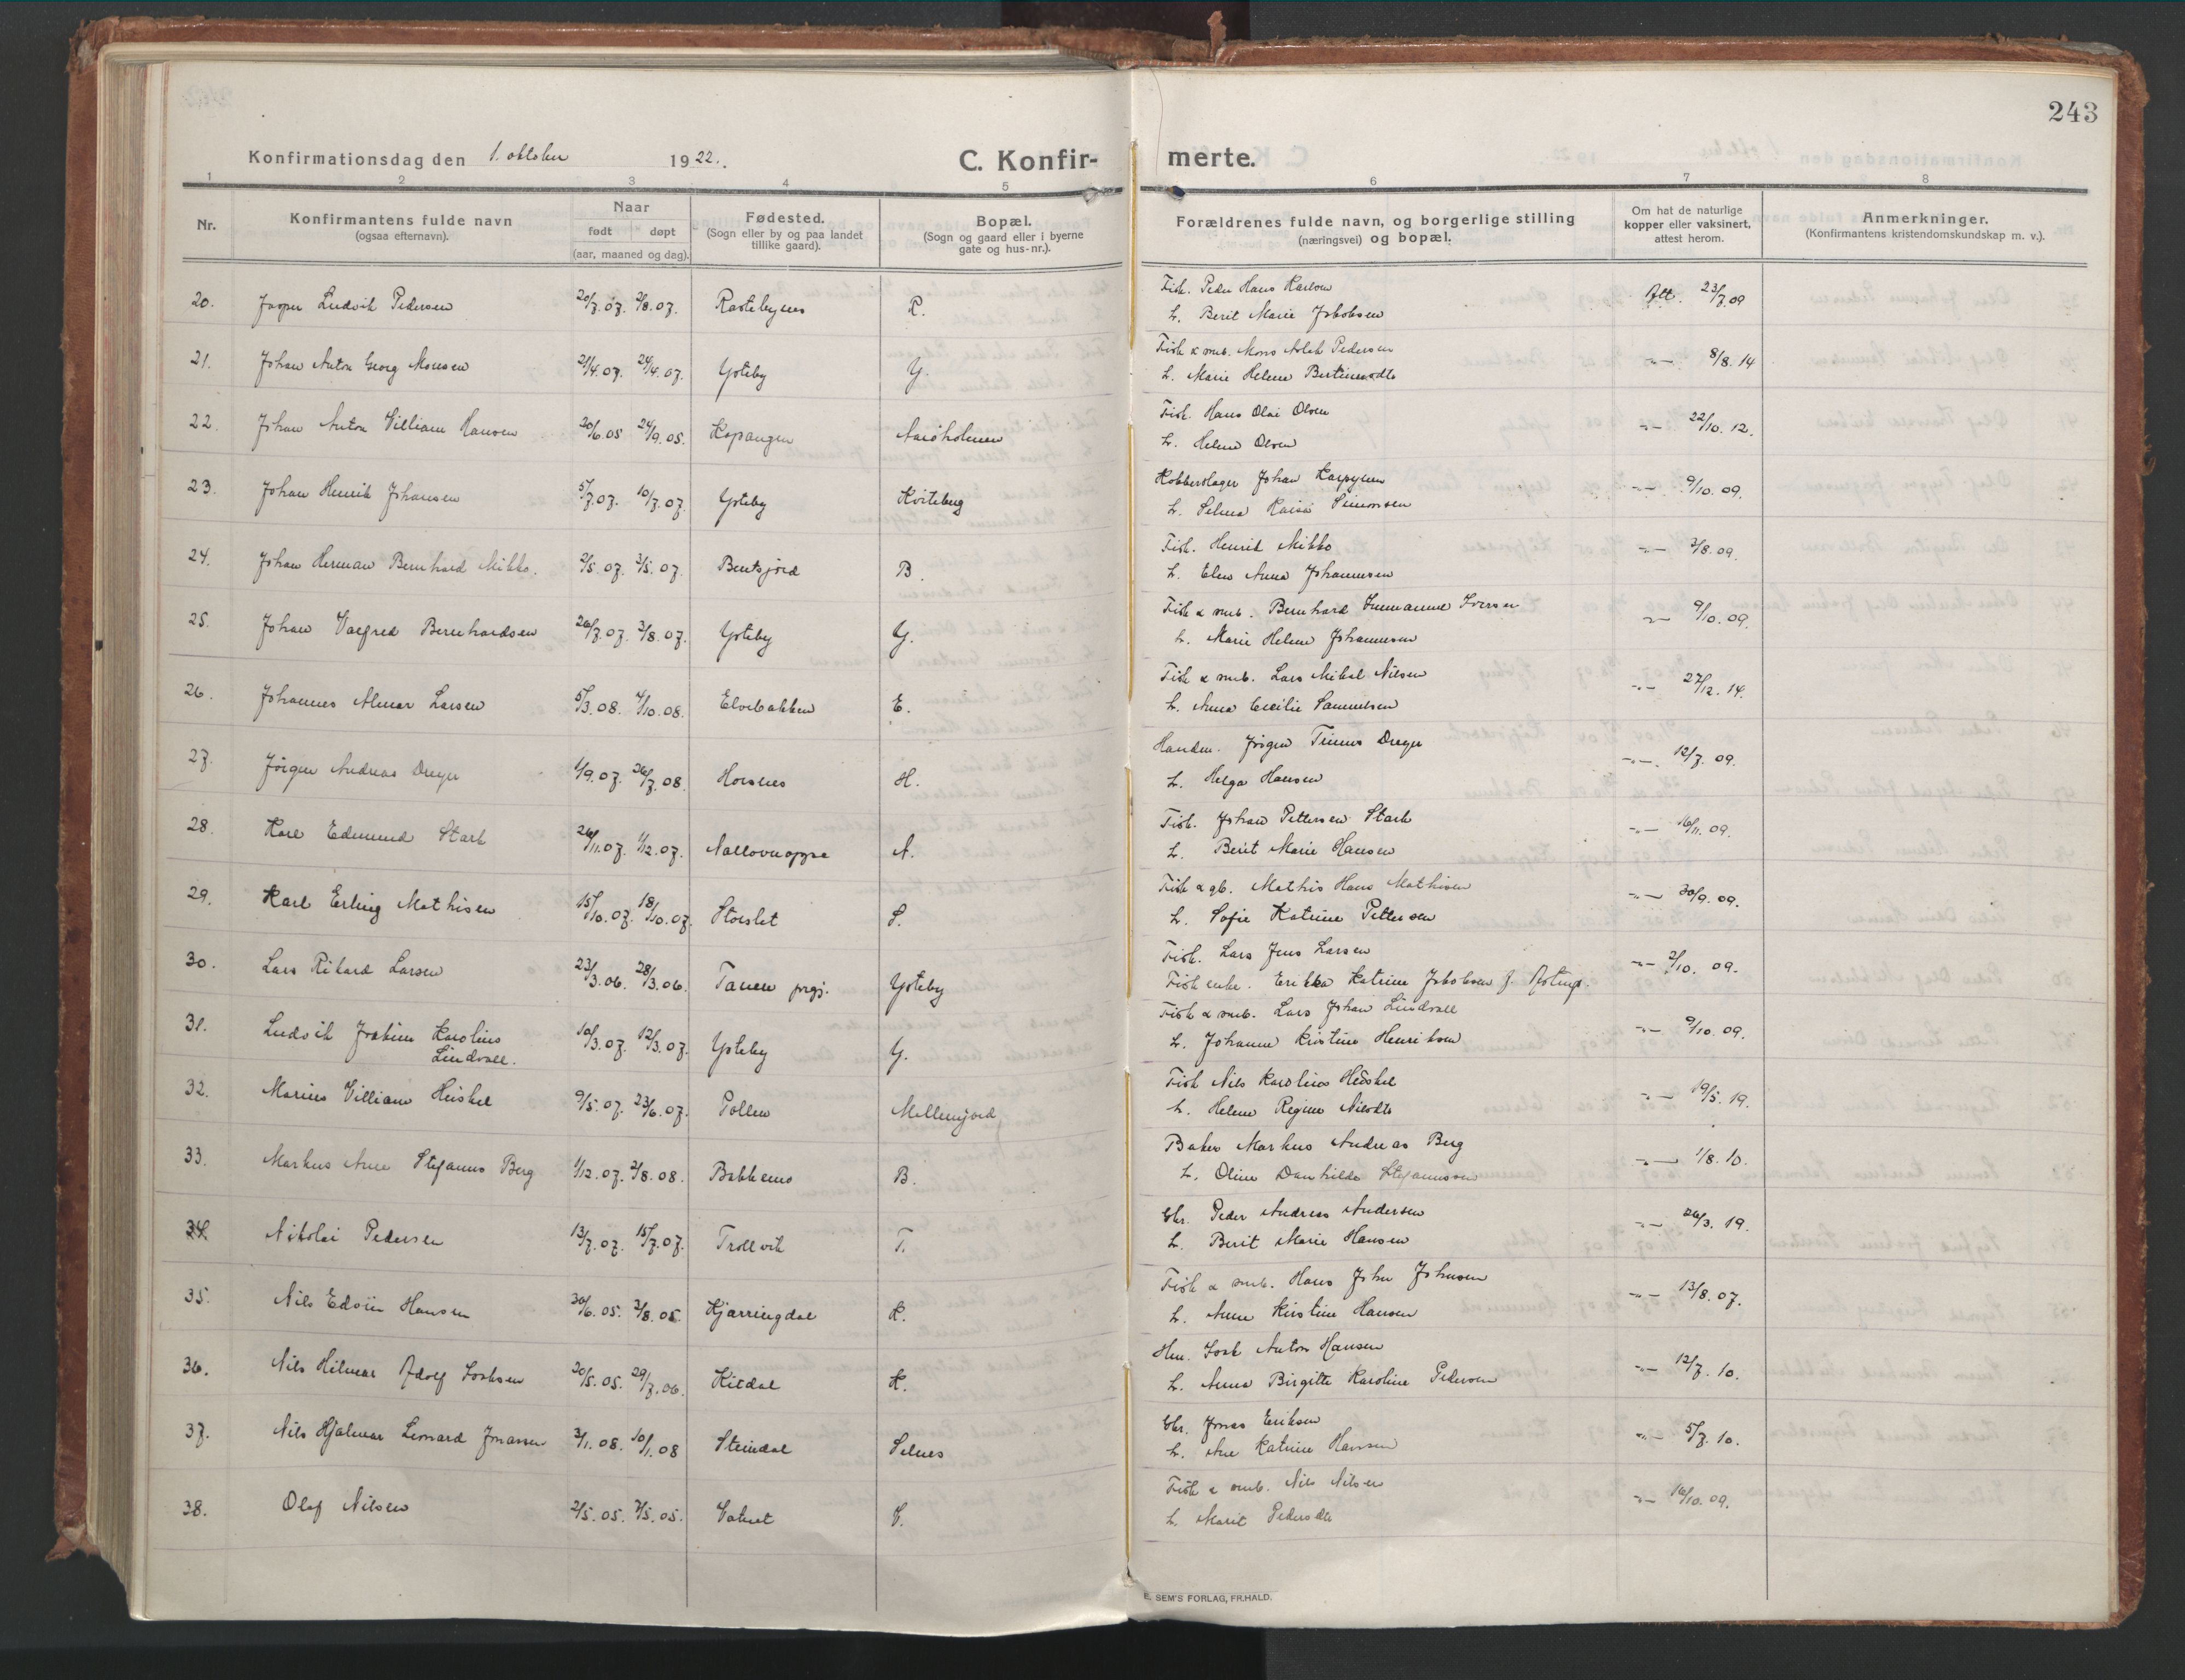 243
Konfirmationsdag den 1. oktober 1922.
C. Konfir-merte.
1 2 3 4 5 6 7 8
Nr.
Konfirmantens fulde navn
(ogsaa efternavn).
Naar
født døpt
(aar, maaned og dag).
Fødested.
(Sogn eller by og paa landet
tillike gaard).
Bopæl.
(Sogn og gaard eller i byerne
gate og hus-nr.).
Forældrenes fulde navn, og borgerlige stilling
(næringsvei) og bopæl.
Om hat de naturlige
kopper eller vaksinert,
attest herom.
Anmerkninger.
(Konfirmantens kristendomskundskap m. v.).
Fisk. Peder Hans Karlsen
20. Ludvik Pedersen 20/7.07. 2/8.07. R. Att. 23/7.09
h. Berit Marie Jakobsen
Fisk & smb. Mons Aslak Pedersen
21. Johan Anton Georg Monsen 21/4.07. 24/4.07. Yoteby Y. -"- 8/8.14
h. Marie Helene
Fisk. Hans Olai Olsen
22. Johan Anton Villiam Hansen 20/6.05 24/9.05. Kopangen -"- 22/10.12.
h. Helene Olsen
Kobberslager Johan
23. Johan Henrik Johansen 5/7.07. 10/7.07. Yoteby Kviteberg -"- 9/10.09.
h. Selma Kaisa Simonsen
Fisk. Henrik Mikko
24. Johan Herman Bernhard Mikko. 2/5.07. 3/5.07. Bentsjord B. -"- 2/8.09.
h. Elen Anna Johannesen
Fisk & smb. Bernhard Immanuel Iversen
25. Johan Valfred Bernhardsen 26/7.07. 3/8.07. Yoteby Y. -"- 9/10.09.
h. Marie Helene Johannesen
Fisk & smb. Lars Mikal Nilsen
26. Johannes Almar Larsen 5/3.08. 4/10.08. Elvebakken E. -"- 27/12.14.
h. Anna Cecilie Samuelsen
Handm. Jørgen Dreyer
27. Jørgen Andreas Dreyer 1/9.07. 26/7.08. Horsnes H. -"- 12/7.09.
h. Helga Hansen
Fisk. Johan Pettersen Stark
28. Karl Edmund Stark 26/11.07. 1/12.07. Nallovuoppe N. -"- 16/11.09.
h. Berit Marie Hansen
Fisk & gb. Mathis Hans Mathisen
29. Karl Erling Mathisen 15/10.07. 18/10.07. Storslet S. -"- 30/9.09.
h. Sofie Katrine Pettersen
Fisk. Lars Jens Larsen
30. Lars Rikard Larsen 23/3.06. 28/3.06. Tanen prgj. Yoteby -"- 2/10.09.
Fisk enke. Erikka Katrine Jakobsen f.
Fisk & smb. Lars Johan Lindvall
31. Ludvik Joakim Karolius
Lindvall. 10/3.07. 12/3.07. Yoteby Y. -"- 9/10.09.
h. Johanne Kristine Henriksen
Fisk Nils Karolius Heiskel
32. Marius Villiam Heiskel 9/5.07. 23/6.07. Pollen Mellemjord -"- 19/5.19.
h. Helene Regine Nilsdtr
Baker Markus Andreas Berg
33. Markus Arne Stefanus Berg 1/12.07. 2/8.08. Bakkens B. -"- 1/8.10.
h. Oline Danhilda Stefanussen
Gbr. Peder Andreas Andersen
34. Nikolai Pedersen 13/7.07. 15/7.07. Trollvik T. -"- 26/3.19.
h. Berit Marie Hansen
Fisk & smb. Hans Johan Johnsen
35. Nils Edvin Hansen 30/6.05. 2/8.05. Kjærringdal K. -"- 13/8.07.
h. Anne Kirstine Hansen
Hm. Isak Anton Hansen
36. Nils Hilmar Adolf Isaksen 20/5.05. 29/7.06. Kitdal K. -"- 12/7.10.
h. Anna Birgitte Karoline Pedersen
Gbr. Jonas Eriksen
37. Nils Hjalmar Leonard Jonassen 3/1.08. 10/1.08 Steindal Selnes -"- 5/7.10.
h. Ane Katrine Hansen
Fisk & smb. Nils Nilsen
38. Olaf Nilsen 2/5.05. 7/5.05. Vatnet V. -"- 16/10.09.
h. Marit Pedersdtr
E. SEM'S FORLAG, FR.HALD.